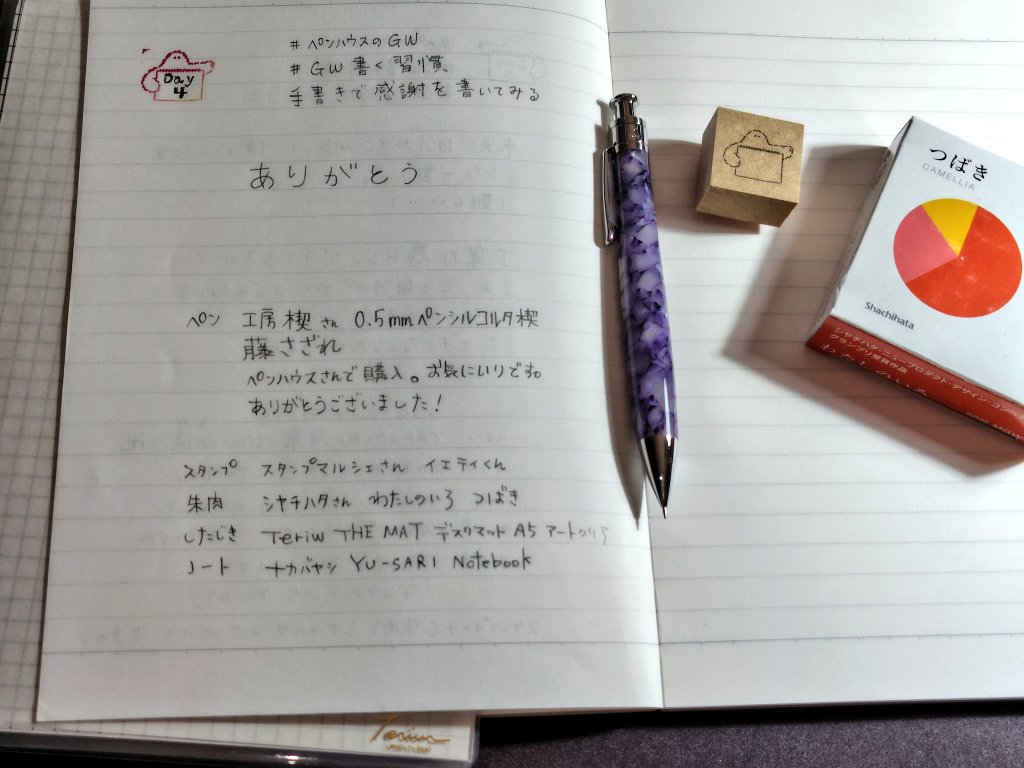 Day
4
#ペンハウスのGW
#GW書く習慣
手書きで感謝を書いてみる
ありがとう
ペン 工房 楔 さん 0.5mmペンシルコルタ楔
藤さざれ
ペンハウスさんで購入。お気にいりです。
ありがとうございました!
スタンプ スタンプマルシェさん イエティくん
朱肉 シヤチハタさん わたしのいろ つばき
したじき Teriw THE MAT デスクマット A5 アートクリア
ノート ナカバヤシ YU-SARI Notebook
つばき
CAMELLIA
Shachihata
シヤチハタ・ニュープロダクト・デザイン・コン
グランプリ受賞作品
わたしのいろ